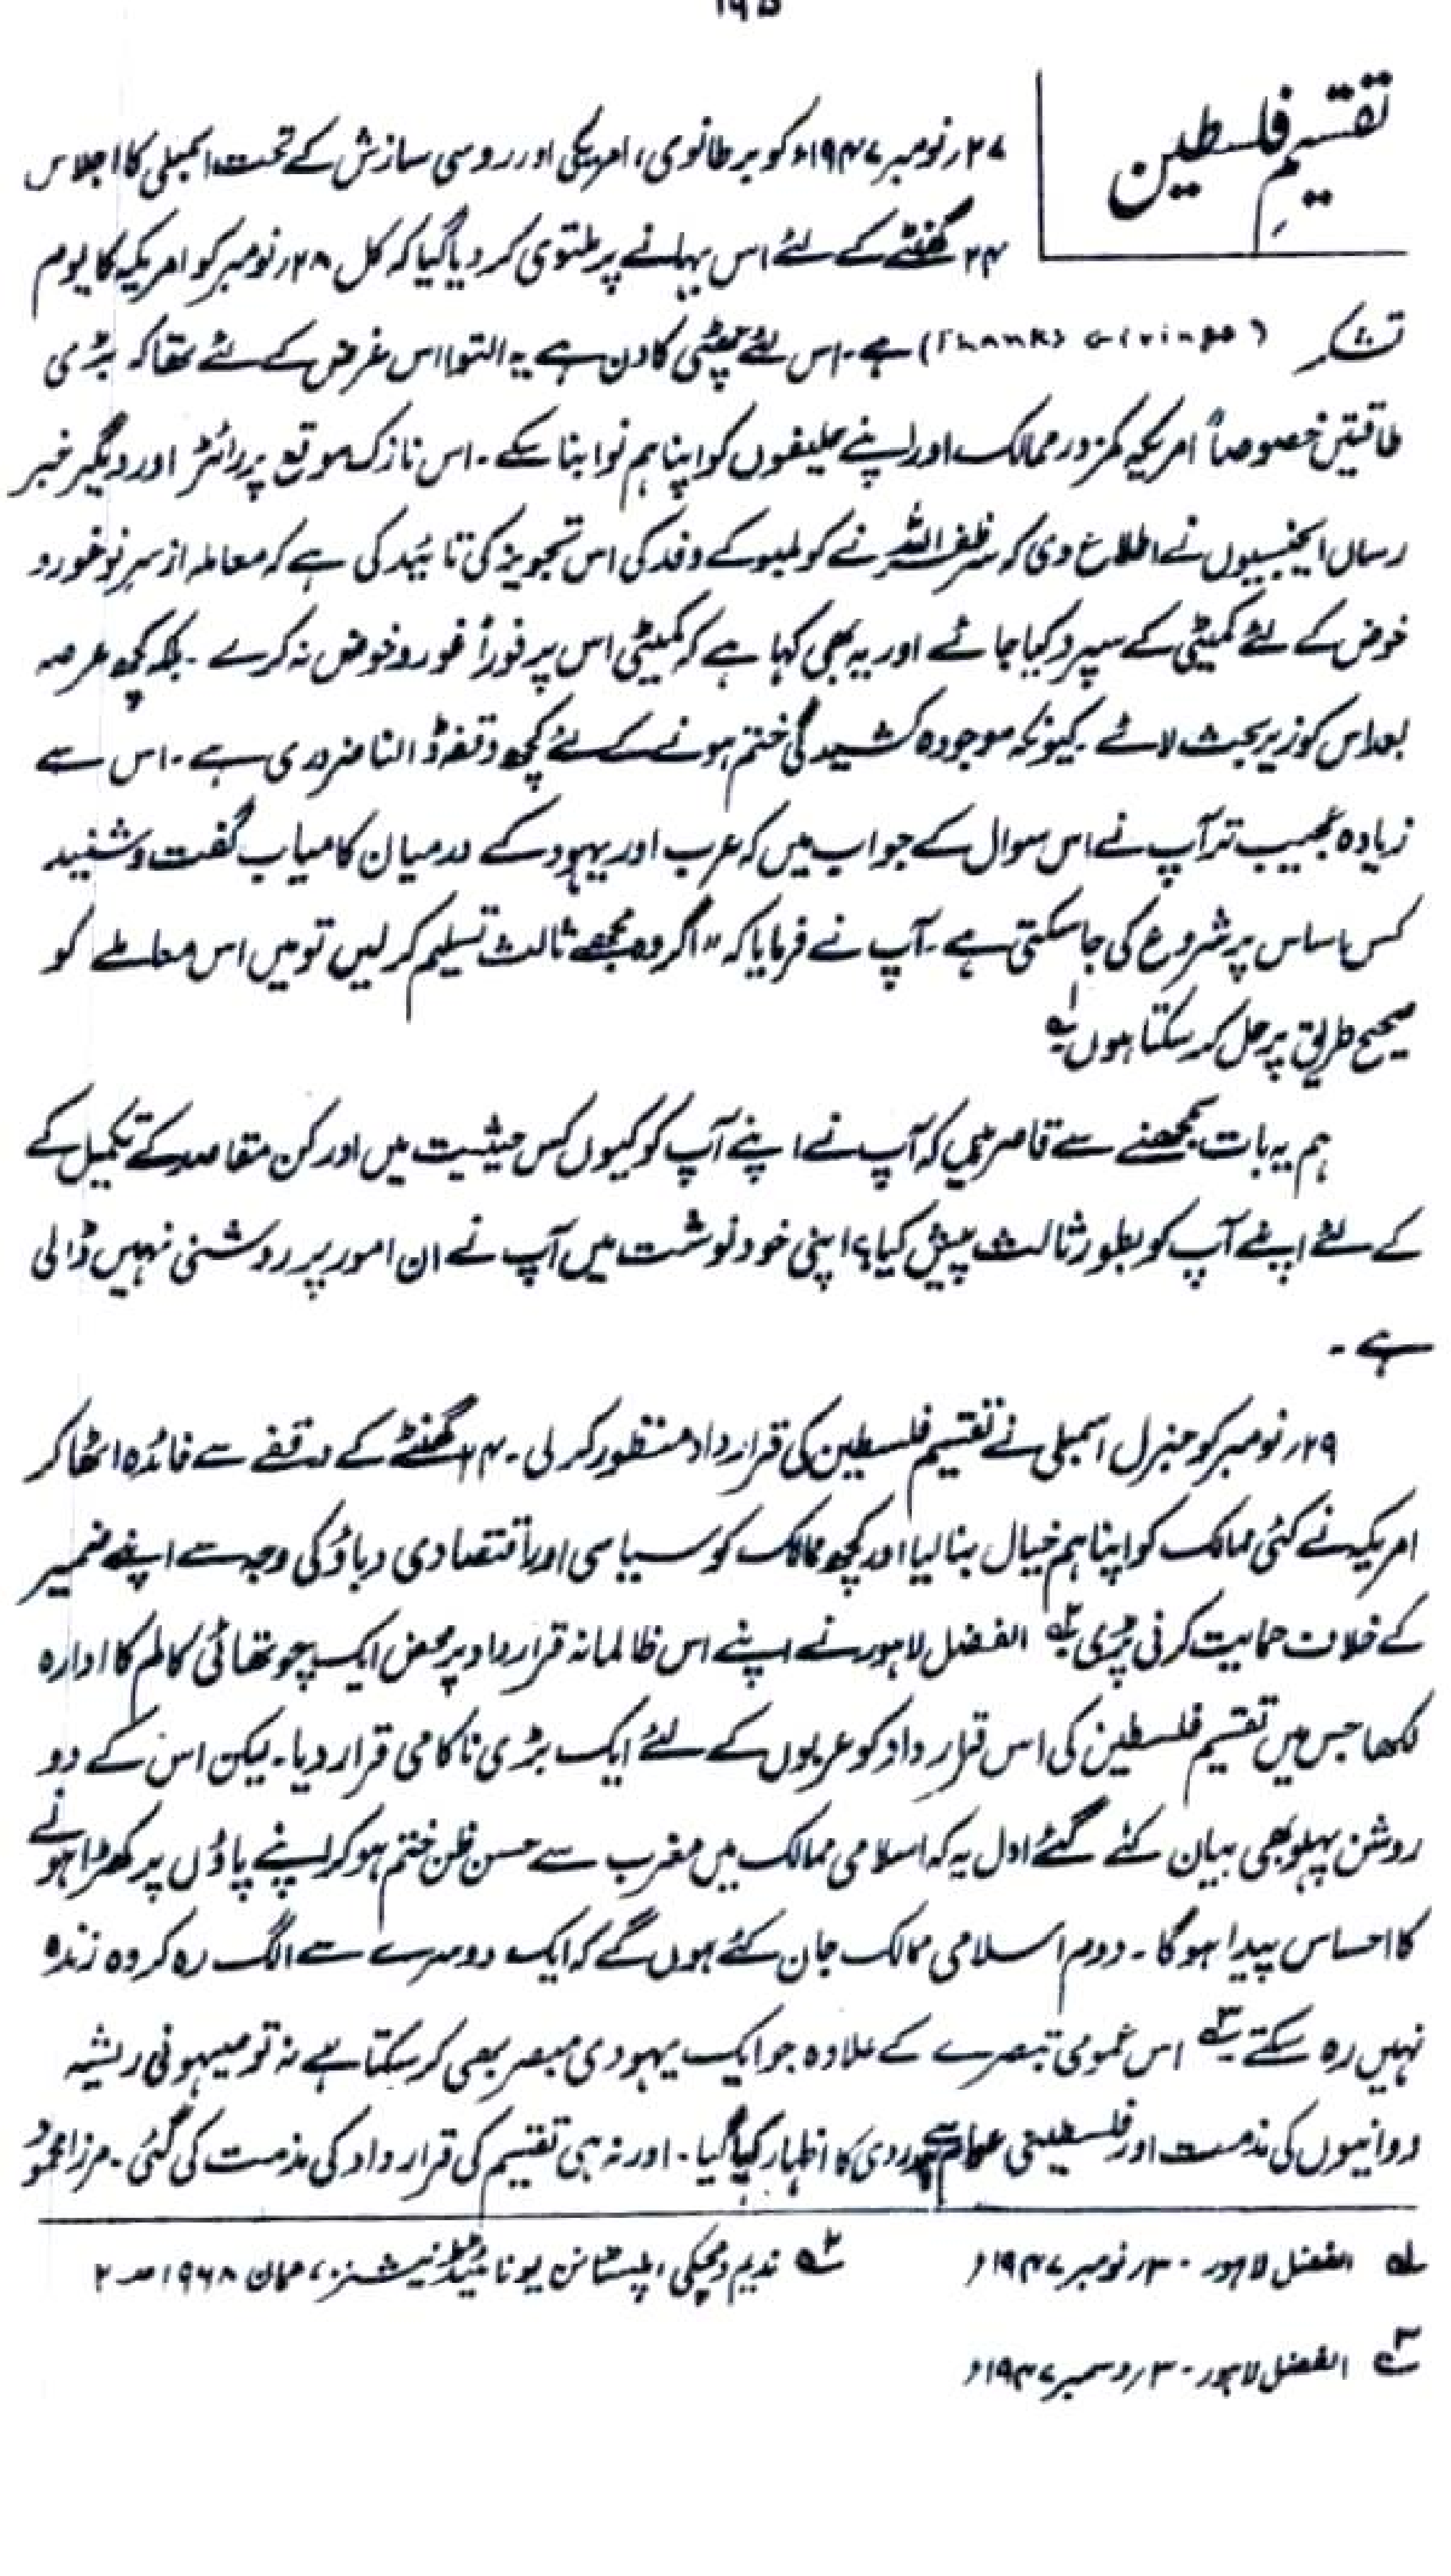 ۱۹۵
تقسیمِ فلسطین
۲۷؍نومبر ۱۹۴۷ء کو برطانوی، امریکی اور روسی سازش کے تحت اسمبلی کا اجلاس
۲۴ گھنٹے کے لئے اس بہانے پر ملتوی کر دیا گیا کہ کل ۲۸؍نومبر کو امریکہ کا یوم
تشکر (Thanks Givings) ہے۔ اس لئے چھٹی کا دن ہے یہ التوا اس غرض کے لئے تھا کہ بڑی
طاقتیں خصوصاً امریکہ کمزور ممالک اور اپنے حلیفوں کو اپنا ہم نوا بنا سکے۔ اس نازک موقع پر رائٹر اور دیگر خبر
رساں ایجنسیوں نے اطلاع دی کہ سر ظفر اللہ نے کولمبو کے وفد کی اس تجویز کی تائید کی ہے کہ معاملہ از سرِ نو غور و
خوض کے لئے کمیٹی کے سپرد کیا جائے اور یہ بھی کہا ہے کہ کمیٹی اس پر فوراً غور و خوض نہ کرے ۔ بلکہ کچھ عرصہ
بعد اس کو زیر بحث لائے ۔ کیونکہ موجودہ کشیدگی ختم ہونے کے لئے کچھ وقفہ ڈالنا ضروری ہے ۔ اس سے
زیادہ عجیب تر آپ نے اس سوال کے جواب میں کہ عرب اور یہود کے درمیان کامیاب گفت و شنید
کس اساس پر شروع کی جا سکتی ہے ۔ آپ نے فرمایا کہ "اگر وہ مجھے ثالث تسلیم کر لیں تو میں اس معاملے کو
صحیح طریق پر حل کر سکتا ہوں ؎۱
ہم یہ بات سمجھنے سے قاصر ہیں کہ آپ نے اپنے آپ کو کیوں کس حیثیت میں اور کن مقاصد کے تکمیل کے
کے لئے اپنے آپ کو بطور ثالث پیش کیا؟ اپنی خود نوشت میں آپ نے ان امور پر روشنی نہیں ڈالی
ہے ۔
۲۹؍نومبر کو جنرل اسمبلی نے تقسیم فلسطین کی قرارداد منظور کر لی ۔ ۲۴ گھنٹے کے وقفے سے فائدہ اٹھا کر
امریکہ نے کئی ممالک کو اپنا ہم خیال بنا لیا اور کچھ ممالک کو سیاسی اور اقتصادی دباؤ کی وجہ سے اپنے ضمیر
کے خلاف حمایت کرنی پڑی ؎۲ الفضل لاہور نے اپنے اس ظالمانہ قرارداد پر محض ایک چوتھائی کالم کا ادارہ
لکھا جس میں تقسیم فلسطین کی اس قرار داد کو عربوں کے لئے ایک بڑی ناکامی قرار دیا۔ لیکن اس کے دو
روشن پہلو بھی بیان کئے گئے اول یہ کہ اسلامی ممالک میں مغرب سے حسن ظن ختم ہو کر اپنے پاؤں پر کھڑا ہونے
کا احساس پیدا ہوگا ۔ دوم اسلامی ممالک جان گئے ہوں گے کہ ایک دوسرے سے الگ رہ کر وہ زندہ
نہیں رہ سکتے ؎۳ اس عمومی تبصرے کے علاوہ جو ایک یہودی مبصر بھی کر سکتا ہے نہ تو صیہونی ریشہ
دوانیوں کی مذمت اور فلسطینی عوام سے ہمدردی کا اظہار کیا گیا ۔ اور نہ ہی تقسیم کی قرار داد کی مذمت کی گئی ۔ مرزا محمود
؎۱ الفضل لاہور ۔ ۳۰؍نومبر ۱۹۴۷ء ؎۲ ندیم ، پلستائن یونائیٹڈ نیشنز ، عمان ۱۹۶۸ صـ ۲
؎۳ الفضل لاہور ۔ ۳؍دسمبر ۱۹۴۷ء